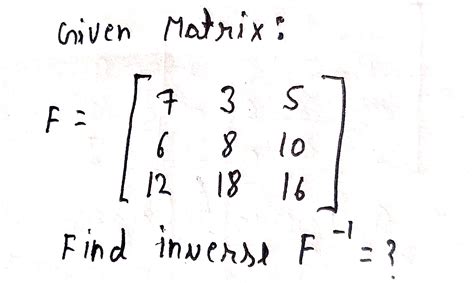 Given Matrix:
F = [ 7 3 5
6 8 10
12 18 16 ]
Find inverse F⁻¹ = ?